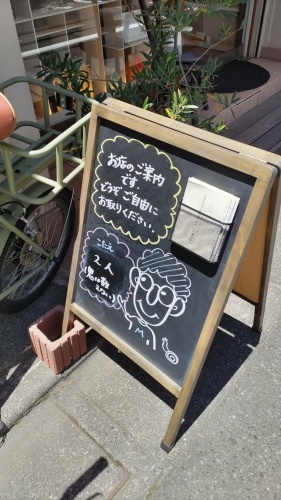 お店のご案内
です。
どうぞご自由に
お取りください。
こたえ
2人